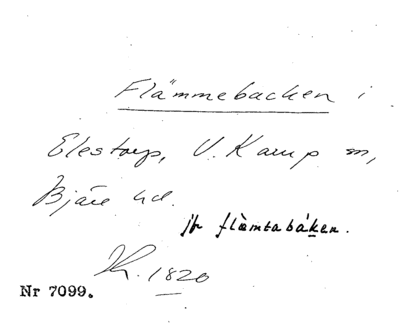 Flämmebacken i
Elestorp, V. Karup sn,
Bjäre hd.
jfr flàmtabáken.
K. 1820
Nr 7099.